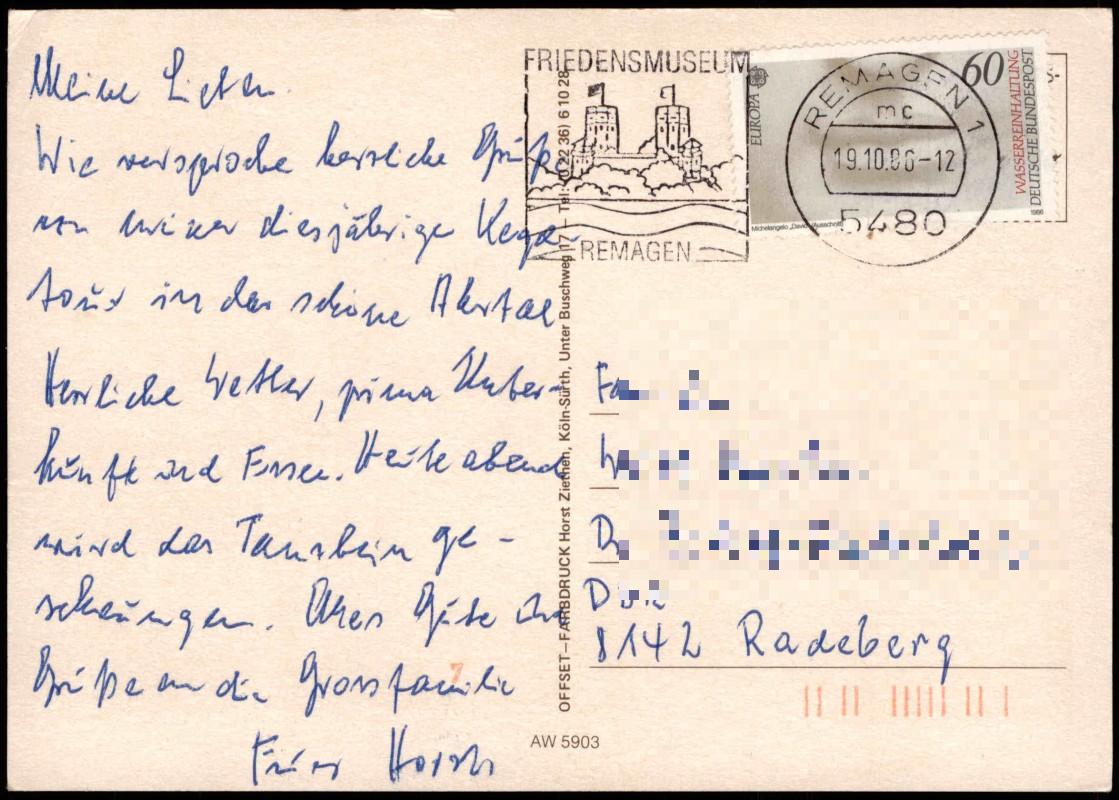 Meine Lieben.
Wie versproche herzliche Grüße
von meiner diesjährige Kegel-
tour in das schöne Ahrtal
Herrliche Wetter, prima Unter-
künft und Essen. Heute abend
wird das Tanzbein ge-
schwungen. Alles Gute und
Grüße an die Grossfamilie
Euer Horst
FRIEDENSMUSEUM
REMAGEN
EUROPA
60
WASSERREINHALTUNG
DEUTSCHE BUNDESPOST
Michelangelo „David" (Ausschnitt)
1986
REMAGEN 1
mc
19.10.86-12
5480
OFFSET–FARBDRUCK Horst Ziethen, Köln-Sürth, Unter Buschweg 17 – Tel. (0 22 36) 6 10 28
8142 Radeberg
7
AW 5903